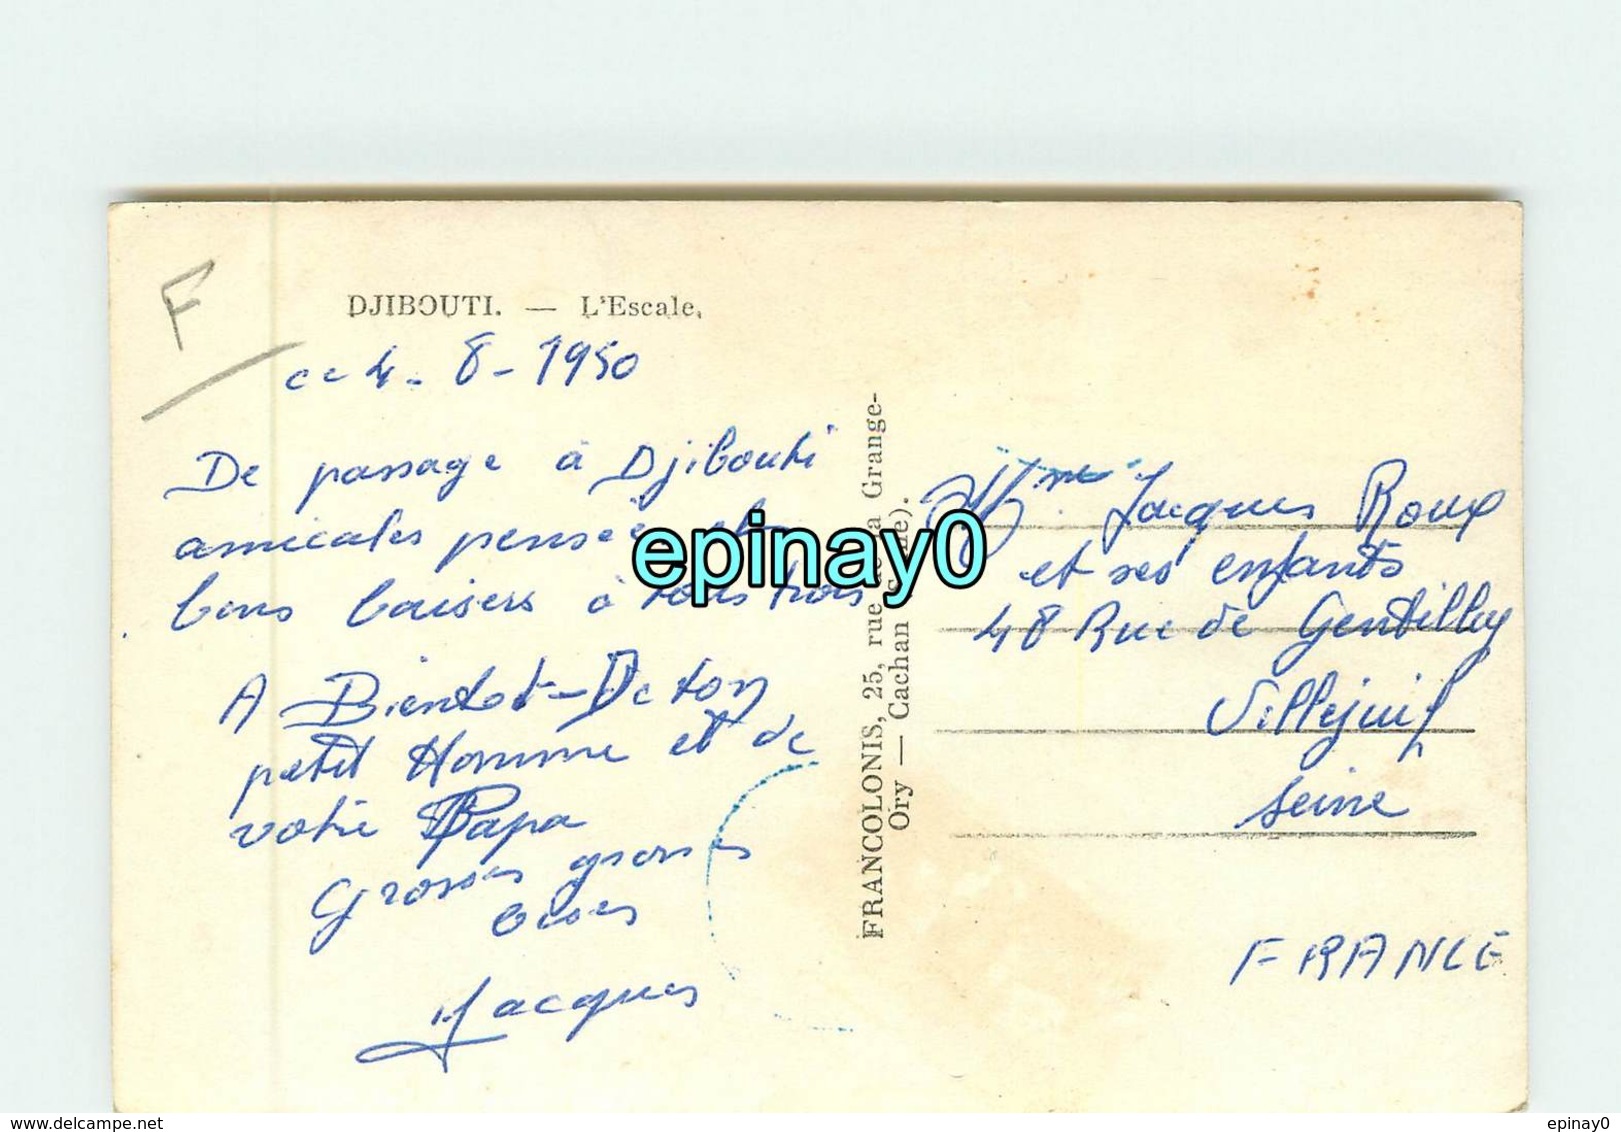 F
DJIBOUTI. — L'Escale.
ce 4 - 8 - 1950
De passage à Djibouti
amicales pensées et
bons baisers à tous trois
A Bientot - De ton
petit Homme et de
votre Papa
Grosses grosses
bises
Jacques
FRANCOLONIS, 25, rue de la Grange-
Ory — Cachan (Seine).
Mme Jacques Roux
et ses enfants
48 Rue de Gentilly
Villejuif
Seine
FRANCE
epinay0
epinay0